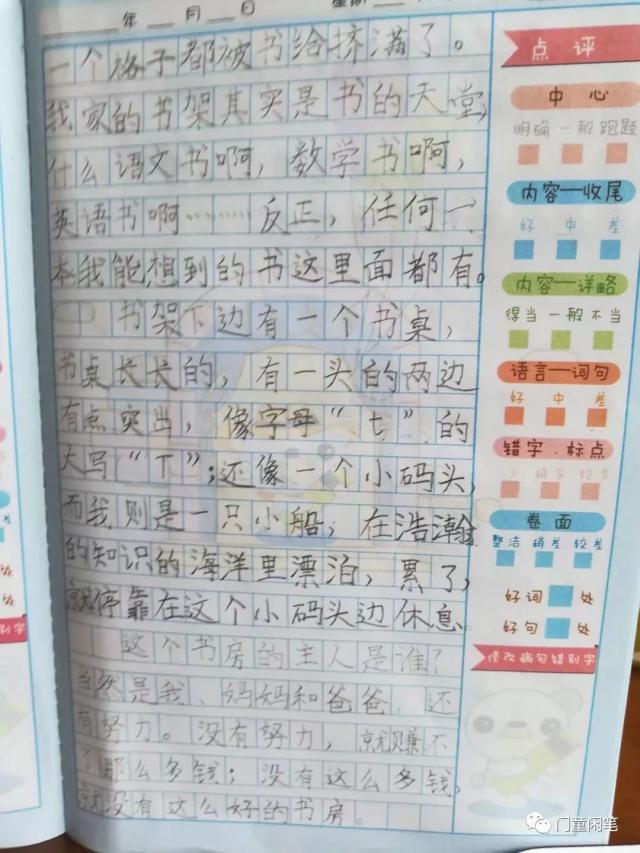 年 月 日 星期
一个格子都被书给挤满了。
我家的书架其实是书的天堂,
什么语文书啊，数学书啊，
英语书啊……反正，任何一
本我能想到的书这里面都有。
书架下边有一个书桌，
书桌长长的，有一头的两边
有点突出，像字母“t”的
大写“T”；还像一个小码头，
而我则是一只小船，在浩瀚
的知识的海洋里漂泊，累了，
就停靠在这个小码头边休息。
这个书房的主人是谁？
当然是我、妈妈和爸爸，还
有努力。没有努力，就赚不
了那么多钱；没有这么多钱，
就没有这么好的书房。
点评
中心
明确 一般 跑题
内容—收尾
好 中 差
内容—详略
得当 一般 不当
语言—词句
好 中 差
错字.标点
少 稍多 较多
卷面
整洁 稍差 较差
好词 处
好句 处
修改病句错别字
门童闲笔